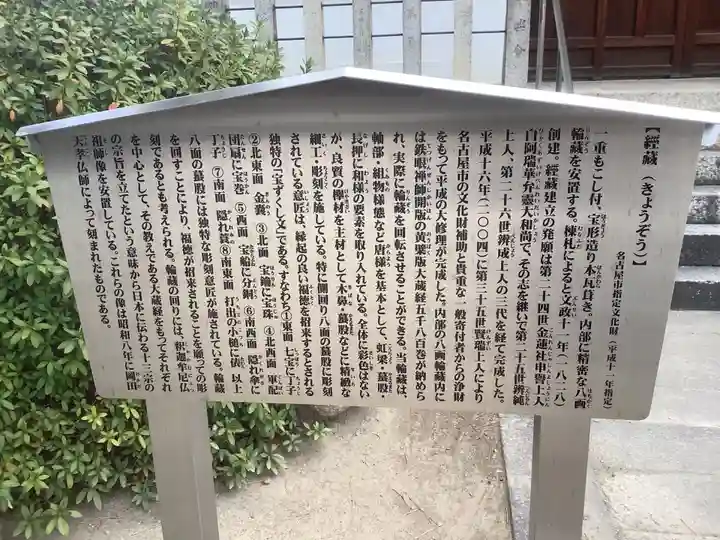 【經藏（きょうぞう）】
名古屋市指定文化財（平成十一年指定）
一重もこし付、宝形造り本瓦葺き。内部に精密な八画
輪藏を安置する。棟札によると文政十一年（一八二八）
創建。經藏建立の発願は第二十四世金蓮社申譽上人
白阿瑞華弁靈大和尚で、その志を継いで第二十五世辨純
上人、第二十六世辨成上人の三代を経て完成した。
平成十六年（二〇〇四）に第三十五世賢瑞上人により
名古屋市の文化財補助と貴重な一般寄付者からの浄財
をもって平成の大修理が完成した。内部の八画輪藏内に
は鉄眼禅師開版の黄檗版大藏経五千八百巻が納めら
れ、実際に輪藏を回転させることができる。当輪藏は、
軸部・組物様態など唐様を基本として、虹梁・蟇股・
長押に和様の要素を取り入れている。全体に彩色はない
が、良質の欅材を主材として木鼻・蟇股などに精緻な
細工・彫刻を施している。特に側回り八面の蟇股に彫刻
されている意匠は、縁起の良い福徳を招来するとされる
独特の「宝ずくし文」である。すなわち①東面 七宝に丁子
②北東面 金嚢 ③北面 宝鑰に宝珠 ④北西面 軍配
団扇に宝巻 ⑤西面 宝船に分銅 ⑥南西面 隠れ傘に
丁子 ⑦南面 隠れ簑 ⑧南東面 打出の小槌に俵 以上
八面の蟇股には独特な彫刻意匠が施されている。輪藏
を回すことにより、福徳が招来されることを願っての彫
刻であるとも考えられる。輪藏の回りには、釈迦牟尼仏
を中心として、その教えである大蔵経をもってそれぞれ
の宗旨を立てたという意味から日本に伝わる十三宗の
祖師像を安置している。これらの像は昭和八年に岡田
大孝仏師によって刻まれたものである。